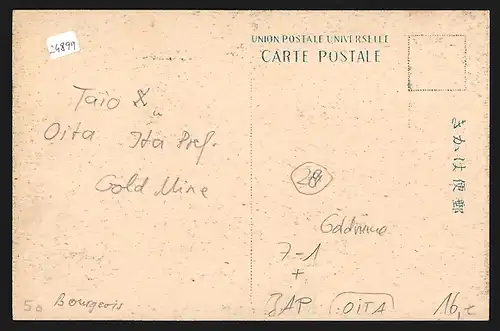 26899
UNION POSTALE UNIVERSELLE
CARTE POSTALE
きかは便郵
Taio
Oita Ita Pref.
Gold Mine
Goldmine
7-1
+
JAP OITA 16,-
50 Bourgeois